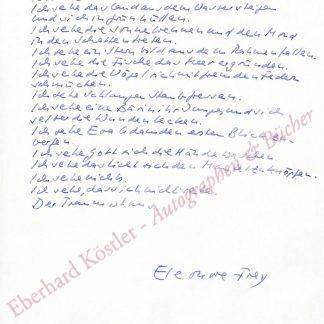 Ich sehe das Land aus dem Wasser steigen
und sich in Grün hüllen.
Ich sehe die Sonne brennen und den Mond
in den Schatten treten.
Ich sehe ein Sternbild aus dem Rahmen fallen.
Ich sehe die Fische das Meer ergründen.
Ich sehe die Vögel sich mit fremden Federn
schmücken.
Ich sehe Schlangen Staub fressen.
Ich sehe eine Bärin ihr Junges und sich
selber die Wunden lecken.
Ich sehe Eva Adam den ersten Blick zu-
werfen.
Ich sehe Gott sich die Hände waschen.
Ich sehe das Licht sich den Himmel zuknöpfen.
Ich sehe nichts.
Ich sehe, dass ich nichts sehe.
Der Traum ist aus.
Eleonore Frey
Eberhard Köstler - Autographen & Bücher